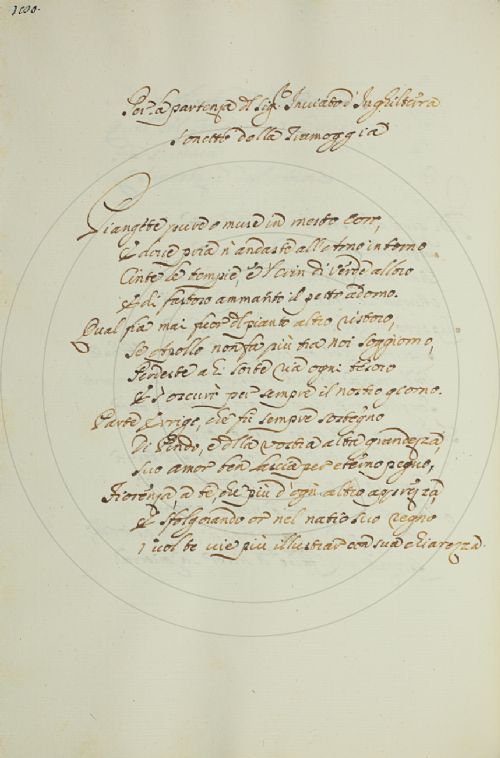 1000.
Per la partenza del Sigr. Inviato d'Inghilterra
Sonetto della Tramoggia
Piangete pure o muse in mesto Coro,
E dove pria n'andaste all'Arno intorno
Cinte le tempie, e'l crin di verde alloro
E di fastoso ammanto il petto adorno.
Qual fia mai fuor del pianto altro ristoro,
Se Apollo non fa più tra noi soggiorno,
Perdeste ahi sorte ria ogni tesoro
E s'oscurò per sempre il nostro giorno.
Parte Errigo, che fu sempre sostegno
Di Pindo, e della vostra alta grandezza,
Suo amor ben lascia per eterno pegno,
Fiorenza, a te, che più d'ogn'altro apprezza,
E sfolgorando or nel natio suo Regno
I vol te vie più illustrar con sua chiarezza.